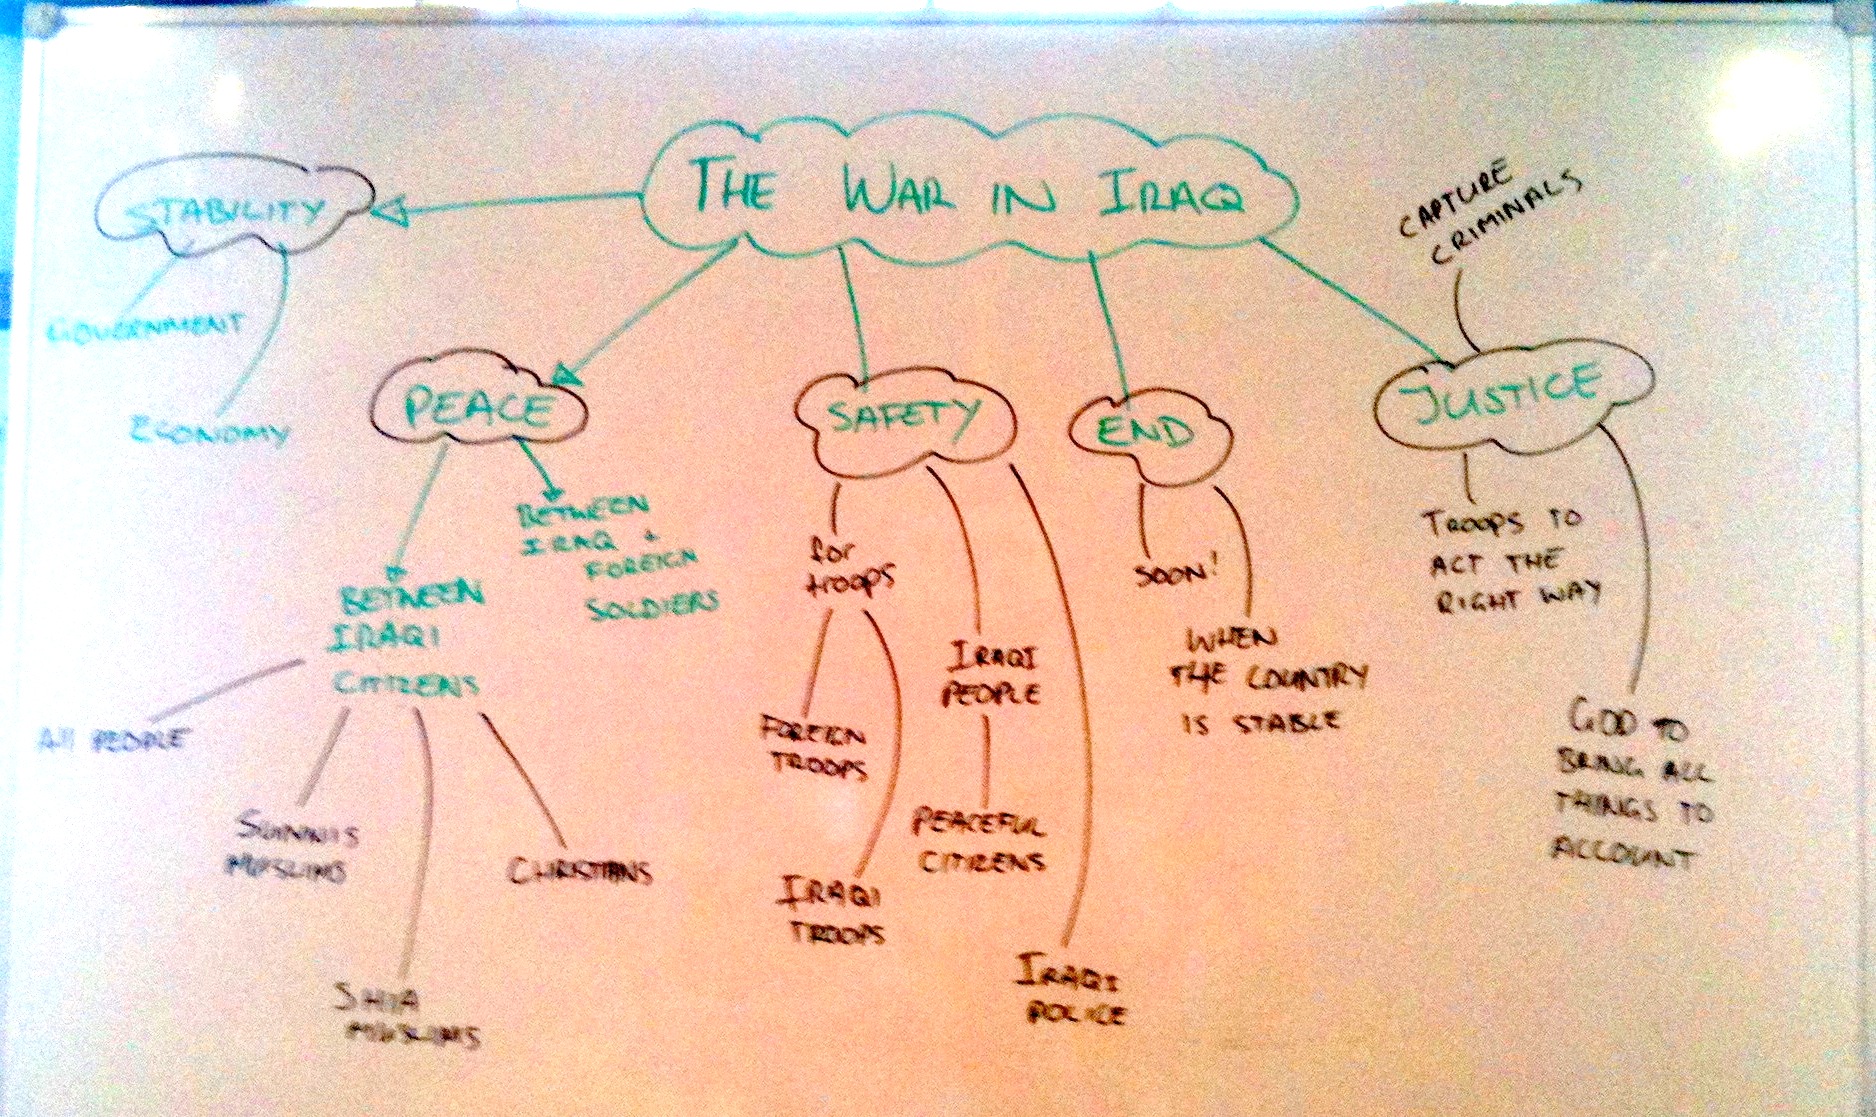 THE WAR IN IRAQ
STABILITY
GOVERNMENT
ECONOMY
PEACE
BETWEEN
IRAQI
CITIZENS
All PEOPLE
SUNNIS
MUSLIMS
SHIA
MUSLIMS
CHRISTIANS
BETWEEN
IRAQ +
FOREIGN
SOLDIERS
SAFETY
for
troops
FOREIGN
TROOPS
IRAQI
TROOPS
IRAQI
PEOPLE
PEACEFUL
CITIZENS
IRAQI
POLICE
END
SOON!
WHEN
THE COUNTRY
IS STABLE
JUSTICE
CAPTURE
CRIMINALS
TROOPS TO
ACT THE
RIGHT WAY
GOD TO
BRING ALL
THINGS TO
ACCOUNT